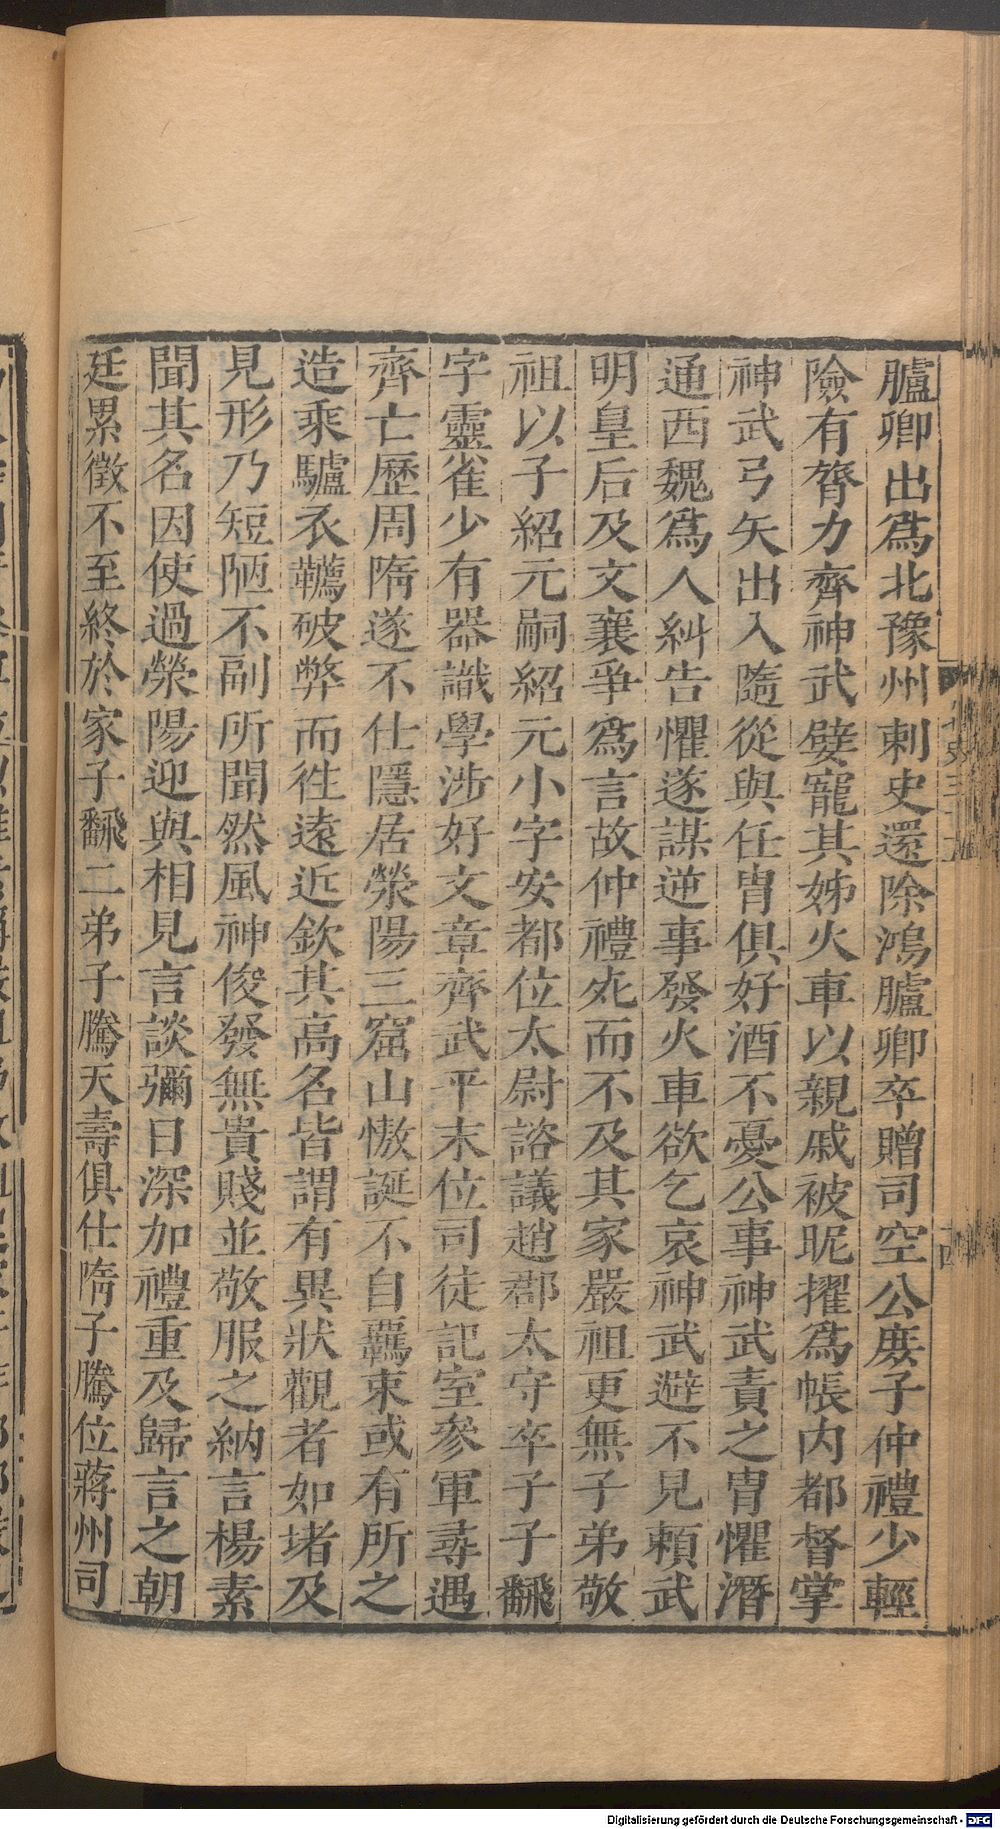 臚卿出爲北豫州刺史還除鴻臚卿卒贈司空公庶子仲禮少輕
險有膂力齊神武嬖寵其姊火車以親戚被昵擢爲帳内都督掌
神武弓矢出入隨從與任胄俱好酒不憂公事神武責之胄懼潛
通西魏爲人糾告懼遂謀逆事發火車欲乞哀神武避不見賴武
明皇后及文襄爭爲言故仲禮死而不及其家嚴祖更無子弟敬
祖以子紹元嗣紹元小字安都位太尉諮議趙郡太守卒子子翻
字靈雀少有器識學涉好文章齊武平末位司徒記室參軍尋遇
齊亡歷周隋遂不仕隱居滎陽三窟山慠誕不自羈束或有所之
造乘驢衣韉破弊而徃遠近欽其高名皆謂有異狀觀者如堵及
見形乃短陋不副所聞然風神俊發無貴賤並敬服之納言楊素
聞其名因使過滎陽迎與相見言談彌日深加禮重及歸言之朝
廷累徵不至終於家子翻二弟子騰天壽俱仕隋子騰位蔣州司
Digitalisierung gefördert durch die Deutsche Forschungsgemeinschaft - DFG